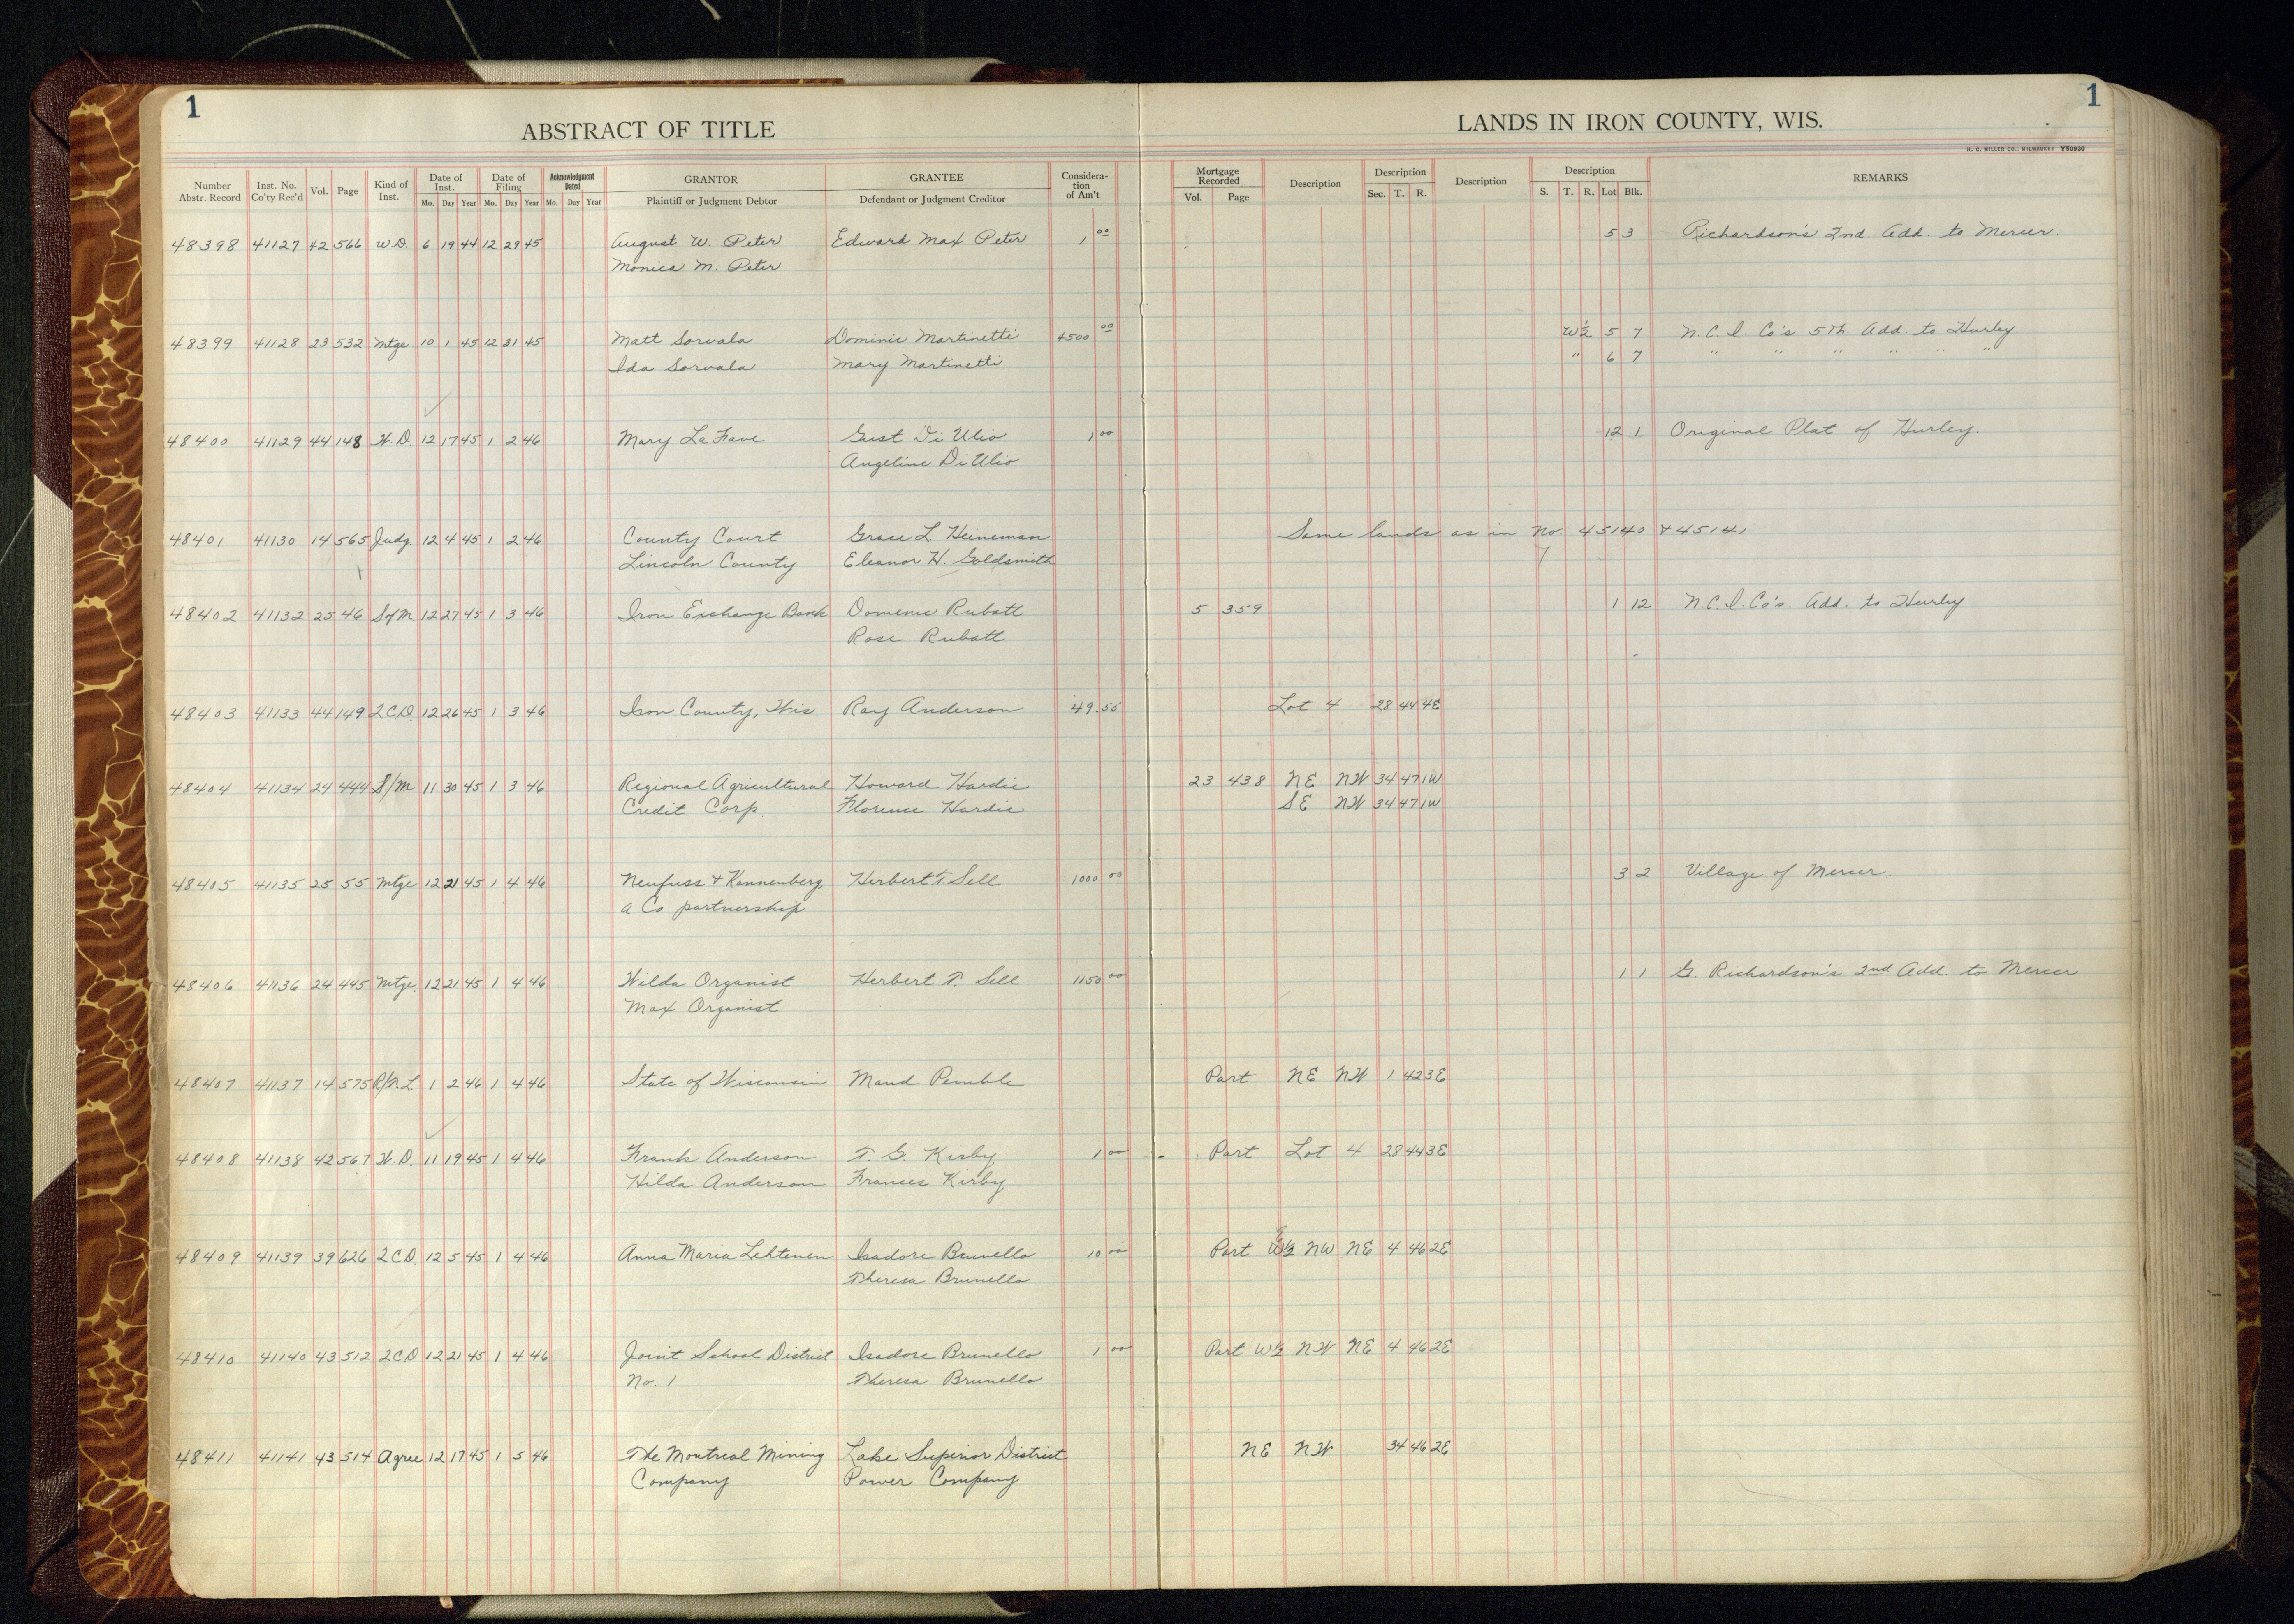 1
1
ABSTRACT OF TITLE
LANDS IN IRON COUNTY, WIS.
H. C. MILLER CO., MILWAUKEE Y50930
Number Abstr. Record Inst. No. Co'ty Rec'd Vol. Page Kind of Inst. Date of Inst. Mo. Day Year Date of Filing Mo. Day Year Acknowledgment Dated Mo. Day Year GRANTOR Plaintiff or Judgment Debtor GRANTEE Defendant or Judgment Creditor Consideration of Am't Mortgage Recorded Vol. Page Description Description Sec. T. R. Description Description S. T. R. Lot Blk. REMARKS
48398 41127 42 566 W.D. 6 19 44 12 29 45 August W. Peter Edward Max Peter 1 00 5 3 Richardson's 2nd. Add. to Mercer.
Monica M. Peter
48399 41128 23 532 Mtge. 10 1 45 12 31 45 Matt Sorvala Dominic Martinetti 4500 00 W½ 5 7 N.C.I. Co's 5th. Add to Hurley.
Ida Sorvala Mary Martinetti " 6 7 " " " " " "
48400 41129 44 148 W.D. 12 17 45 1 2 46 Mary La Fave Gust Di Ulio 1 00 12 1 Original Plat of Hurley.
Angeline Di Ulio
48401 41130 14 565 Judg. 12 4 45 1 2 46 County Court Grace L. Heineman Same lands as in No. 45140 & 45141
Lincoln County Eleanor H. Goldsmith
48402 41132 25 46 S/M. 12 27 45 1 3 46 Iron Exchange Bank Domenic Rubatt 5 359 1 12 N.C.I. Co's. Add. to Hurley
Rose Rubatt
48403 41133 44 149 2CD. 12 26 45 1 3 46 Iron County, Wis. Ray Anderson 49.55 Lot 4 28 44 4E
48404 41134 24 444 S/M 11 30 45 1 3 46 Regional Agricultural Howard Hardie 23 438 NE NW 34 47 1W
Credit Corp. Florence Hardie SE NW 34 47 1W
48405 41135 25 55 Mtge 12 21 45 1 4 46 Neufuss & Kannenberg, Herbert T. Sell 1000 00 3 2 Village of Mercer.
a Co partnership
48406 41136 24 445 Mtge. 12 21 45 1 4 46 Wilda Organist Herbert T. Sell 1150 00 1 1 G. Richardson's 2nd Add. to Mercer
Max Organist
48407 41137 14 575 1 2 46 1 4 46 State of Wisconsin Maud Pemble Part NE NW 1 42 3E
48408 41138 42 567 W.D. 11 19 45 1 4 46 Frank Anderson T. G. Kirby 1 00 Part Lot 4 28 44 3E
Hilda Anderson Frances Kirby
48409 41139 39 626 2CD. 12 5 45 1 4 46 Anna Maria Lehtenen Isadore Brunello 10 00 Part NW NE 4 46 2E
Theresa Brunello
48410 41140 43 512 2CD 12 21 45 1 4 46 Joint School District Isadore Brunello 1 00 Part W½ NW NE 4 46 2E
No. 1 Theresa Brunello
48411 41141 43 514 Agree 12 17 45 1 5 46 The Montreal Mining Lake Superior District NE NW 34 46 2E
Company Power Company